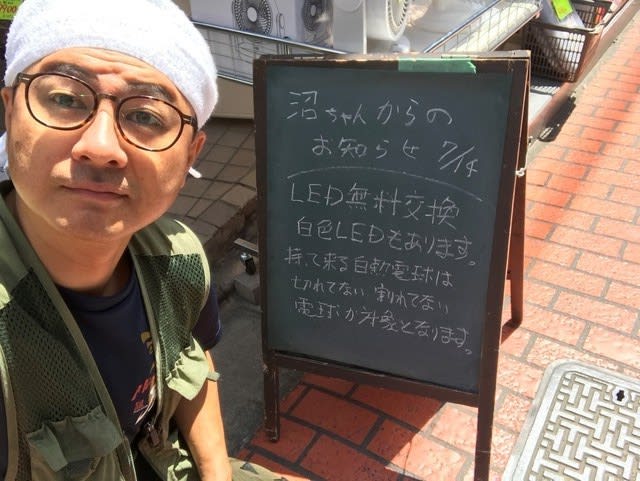 沼ちゃんからの
お知らせ 7/14
LED無料交換
白色LEDもあります。
持って来る白熱電球は
切れてない 割れてない
電球が対象となります。